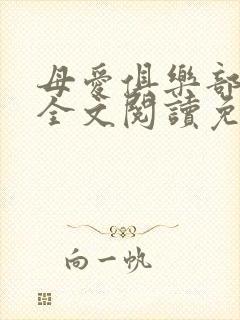 母愛俱樂部
全文閱讀免
向一帆